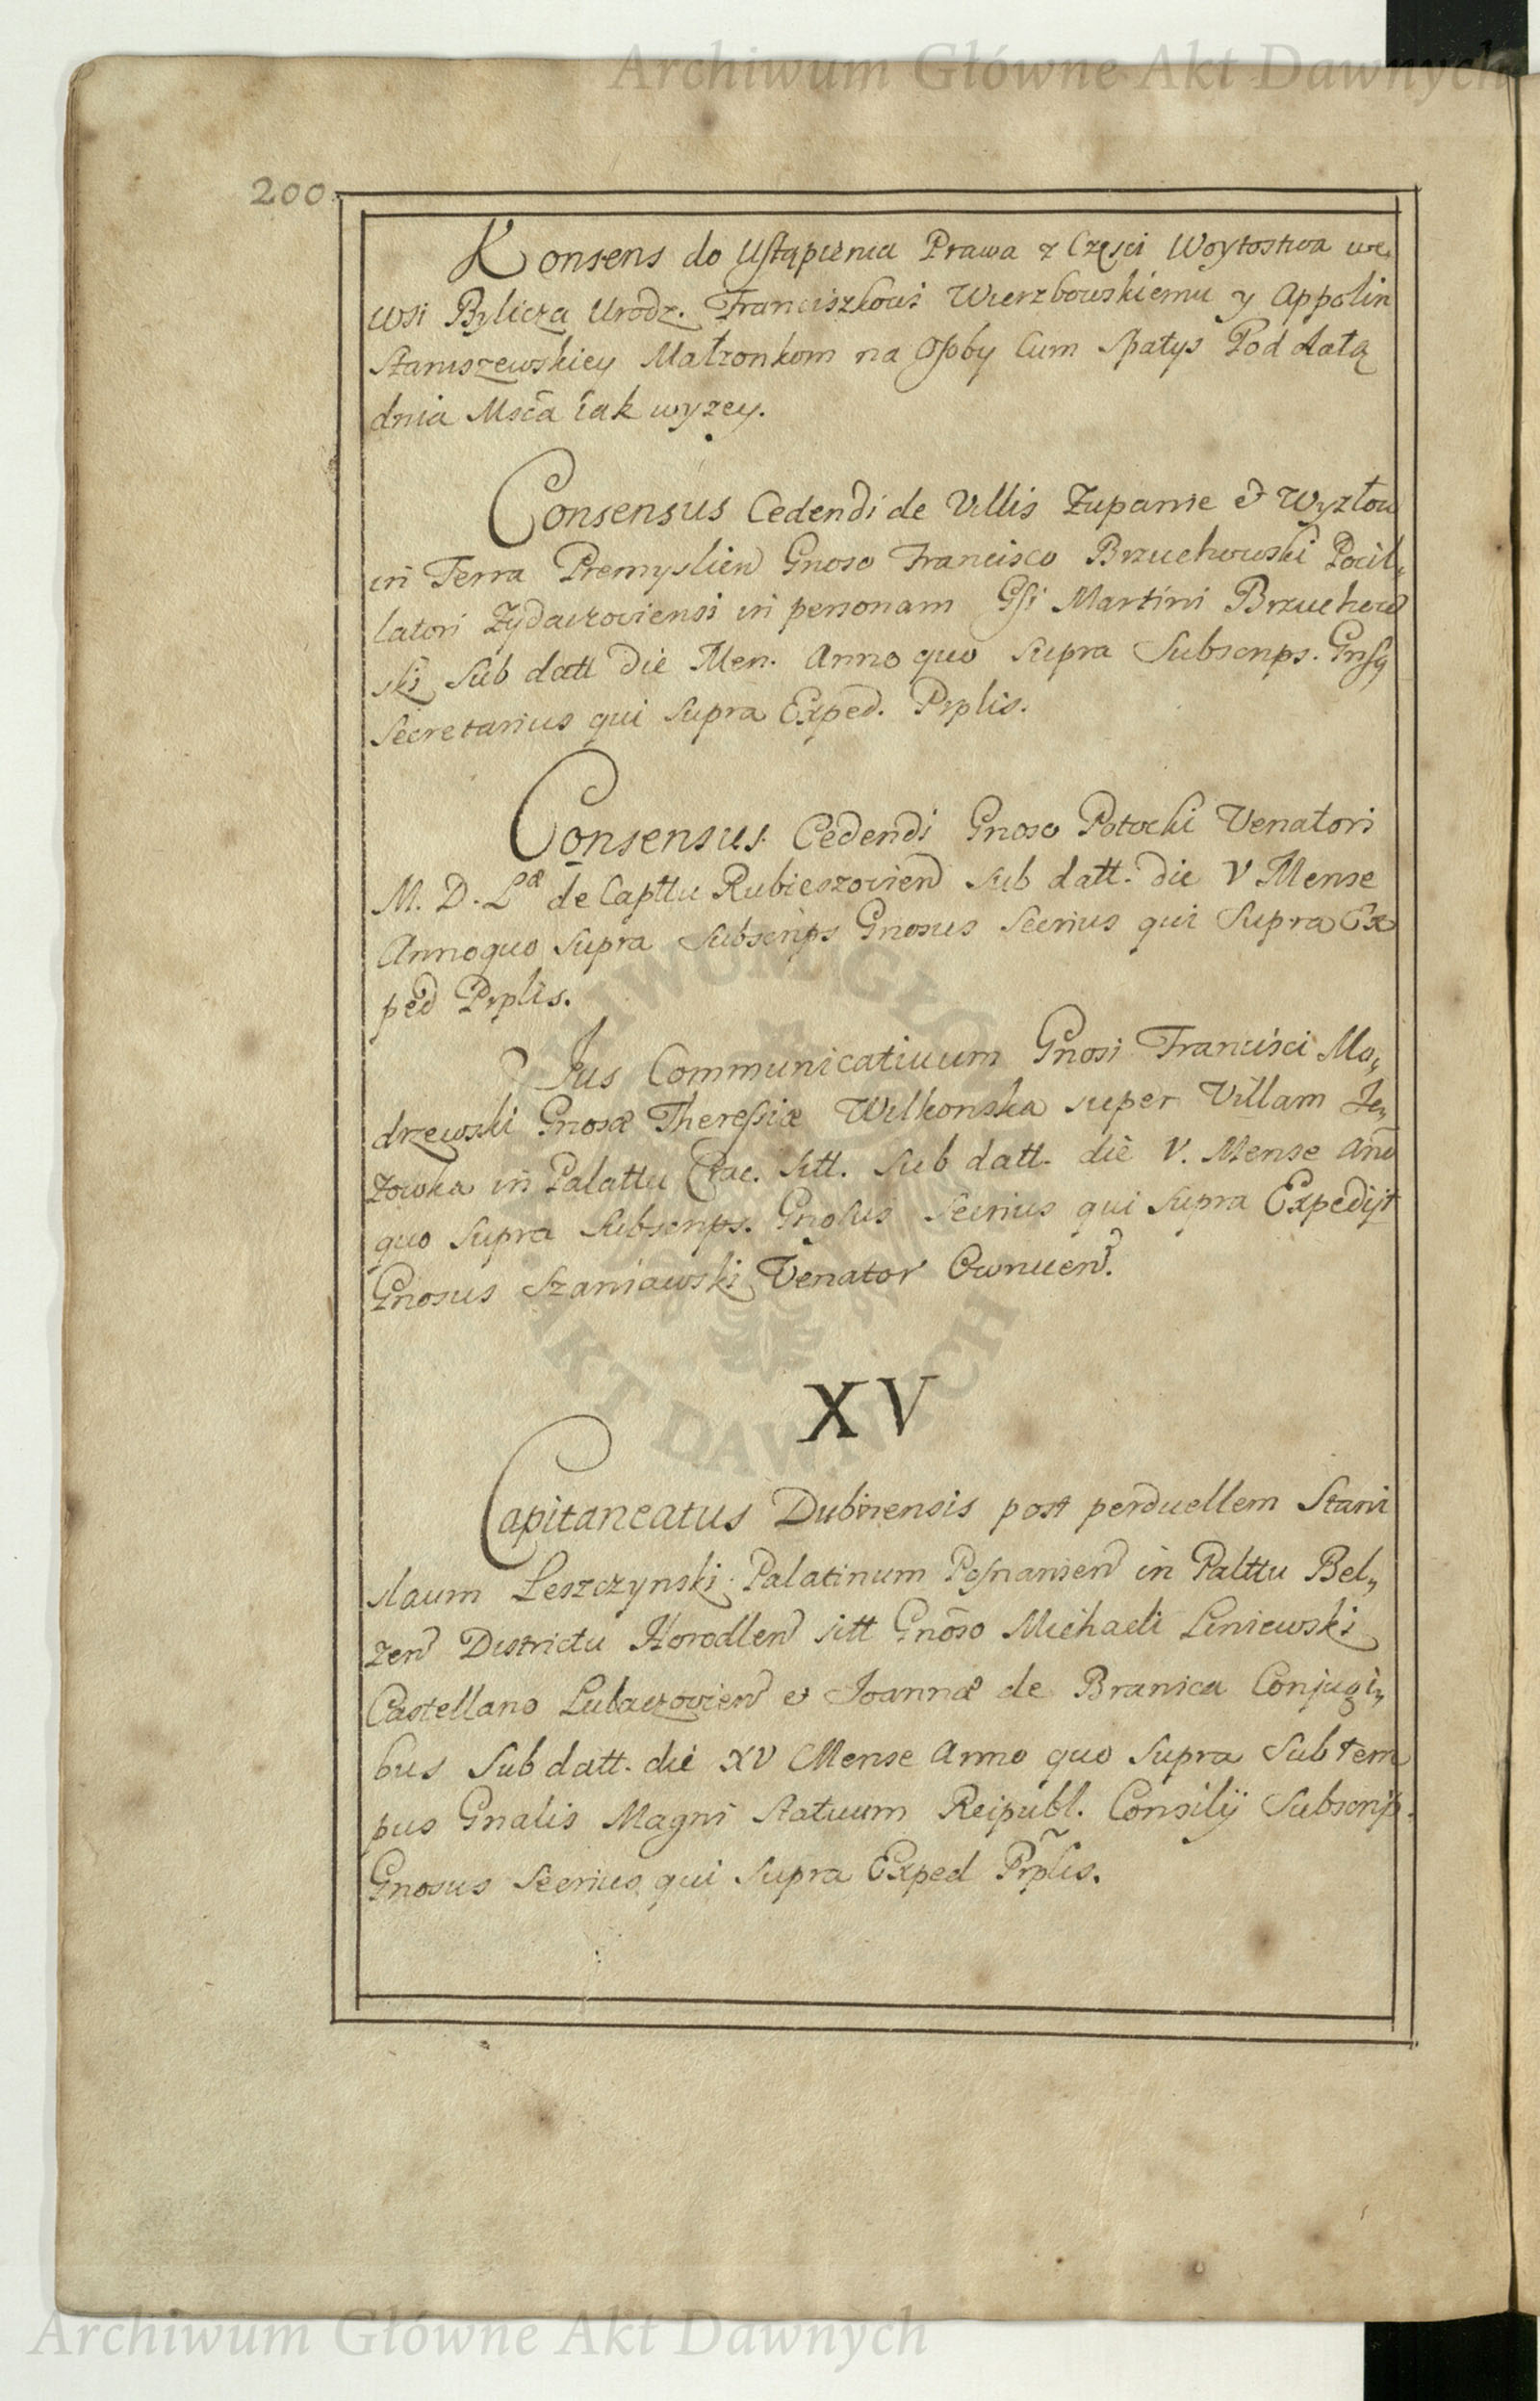 Archiwum Główne Akt Dawnych
200
Konsens do Ustąpienia Prawa z Częsci Woytostwa we
wsi Bylicza Urodz. Franciszkowi Wierzbowskiemu y Appolin
Staniszewskiey Małzonkom na Osoby Cum Spatys Pod datą
dnia Mscã iak wyzey.
Consensus Cedendi de Villis Zupanie et Wyzłow
in Terra Premyslien Gnoso Francisco Brzuchowski Pocil„
latori Zydaczoviensi in personam Gsi Martini Brzuchow
ski Sub datt die Men. Anno quo supra Subscrips. Gnsq
Secretarius qui supra Exped. Prplis.
Consensus Cedendi Gnoso Potocki Venatori
M. D. Læ de Capttu Rubieszovien sub datt. die V Mense
Anno quo supra Subscrips Gnosus Secrius qui supra Ex
ped Prplis.
Jus Communicativum Gnosi Francisci Mo„
drzewski Gnosæ Theresiæ Wilkonska super Villam Je„
zowka in Palattu Crac. sitt. sub datt. die V. Mense Ano
quo supra Subscrips. Gnosus Secrius qui supra Expedijt
Gnosus Szaniawski Venator Owrucen.
XV
Capitaneatus Dubinensis post perduellem Stani
slaum Leszczynski Palatinum Posnanien in Palttu Bel„
zen Districtu Horodlen sitt Gnõso Michaeli Liniewski
Castellano Lubaczovien et Joannæ de Branica Conjugi„
bus Sub datt. die XV Mense Anno quo supra Sub tem
pus Gnalis Magni Statuum Reipubl. Consilij Subscrip.
Gnosus Secrius qui supra Exped Prplis.
ARCHIWUM GŁÓWNE AKT DAWNYCH
Archiwum Główne Akt Dawnych